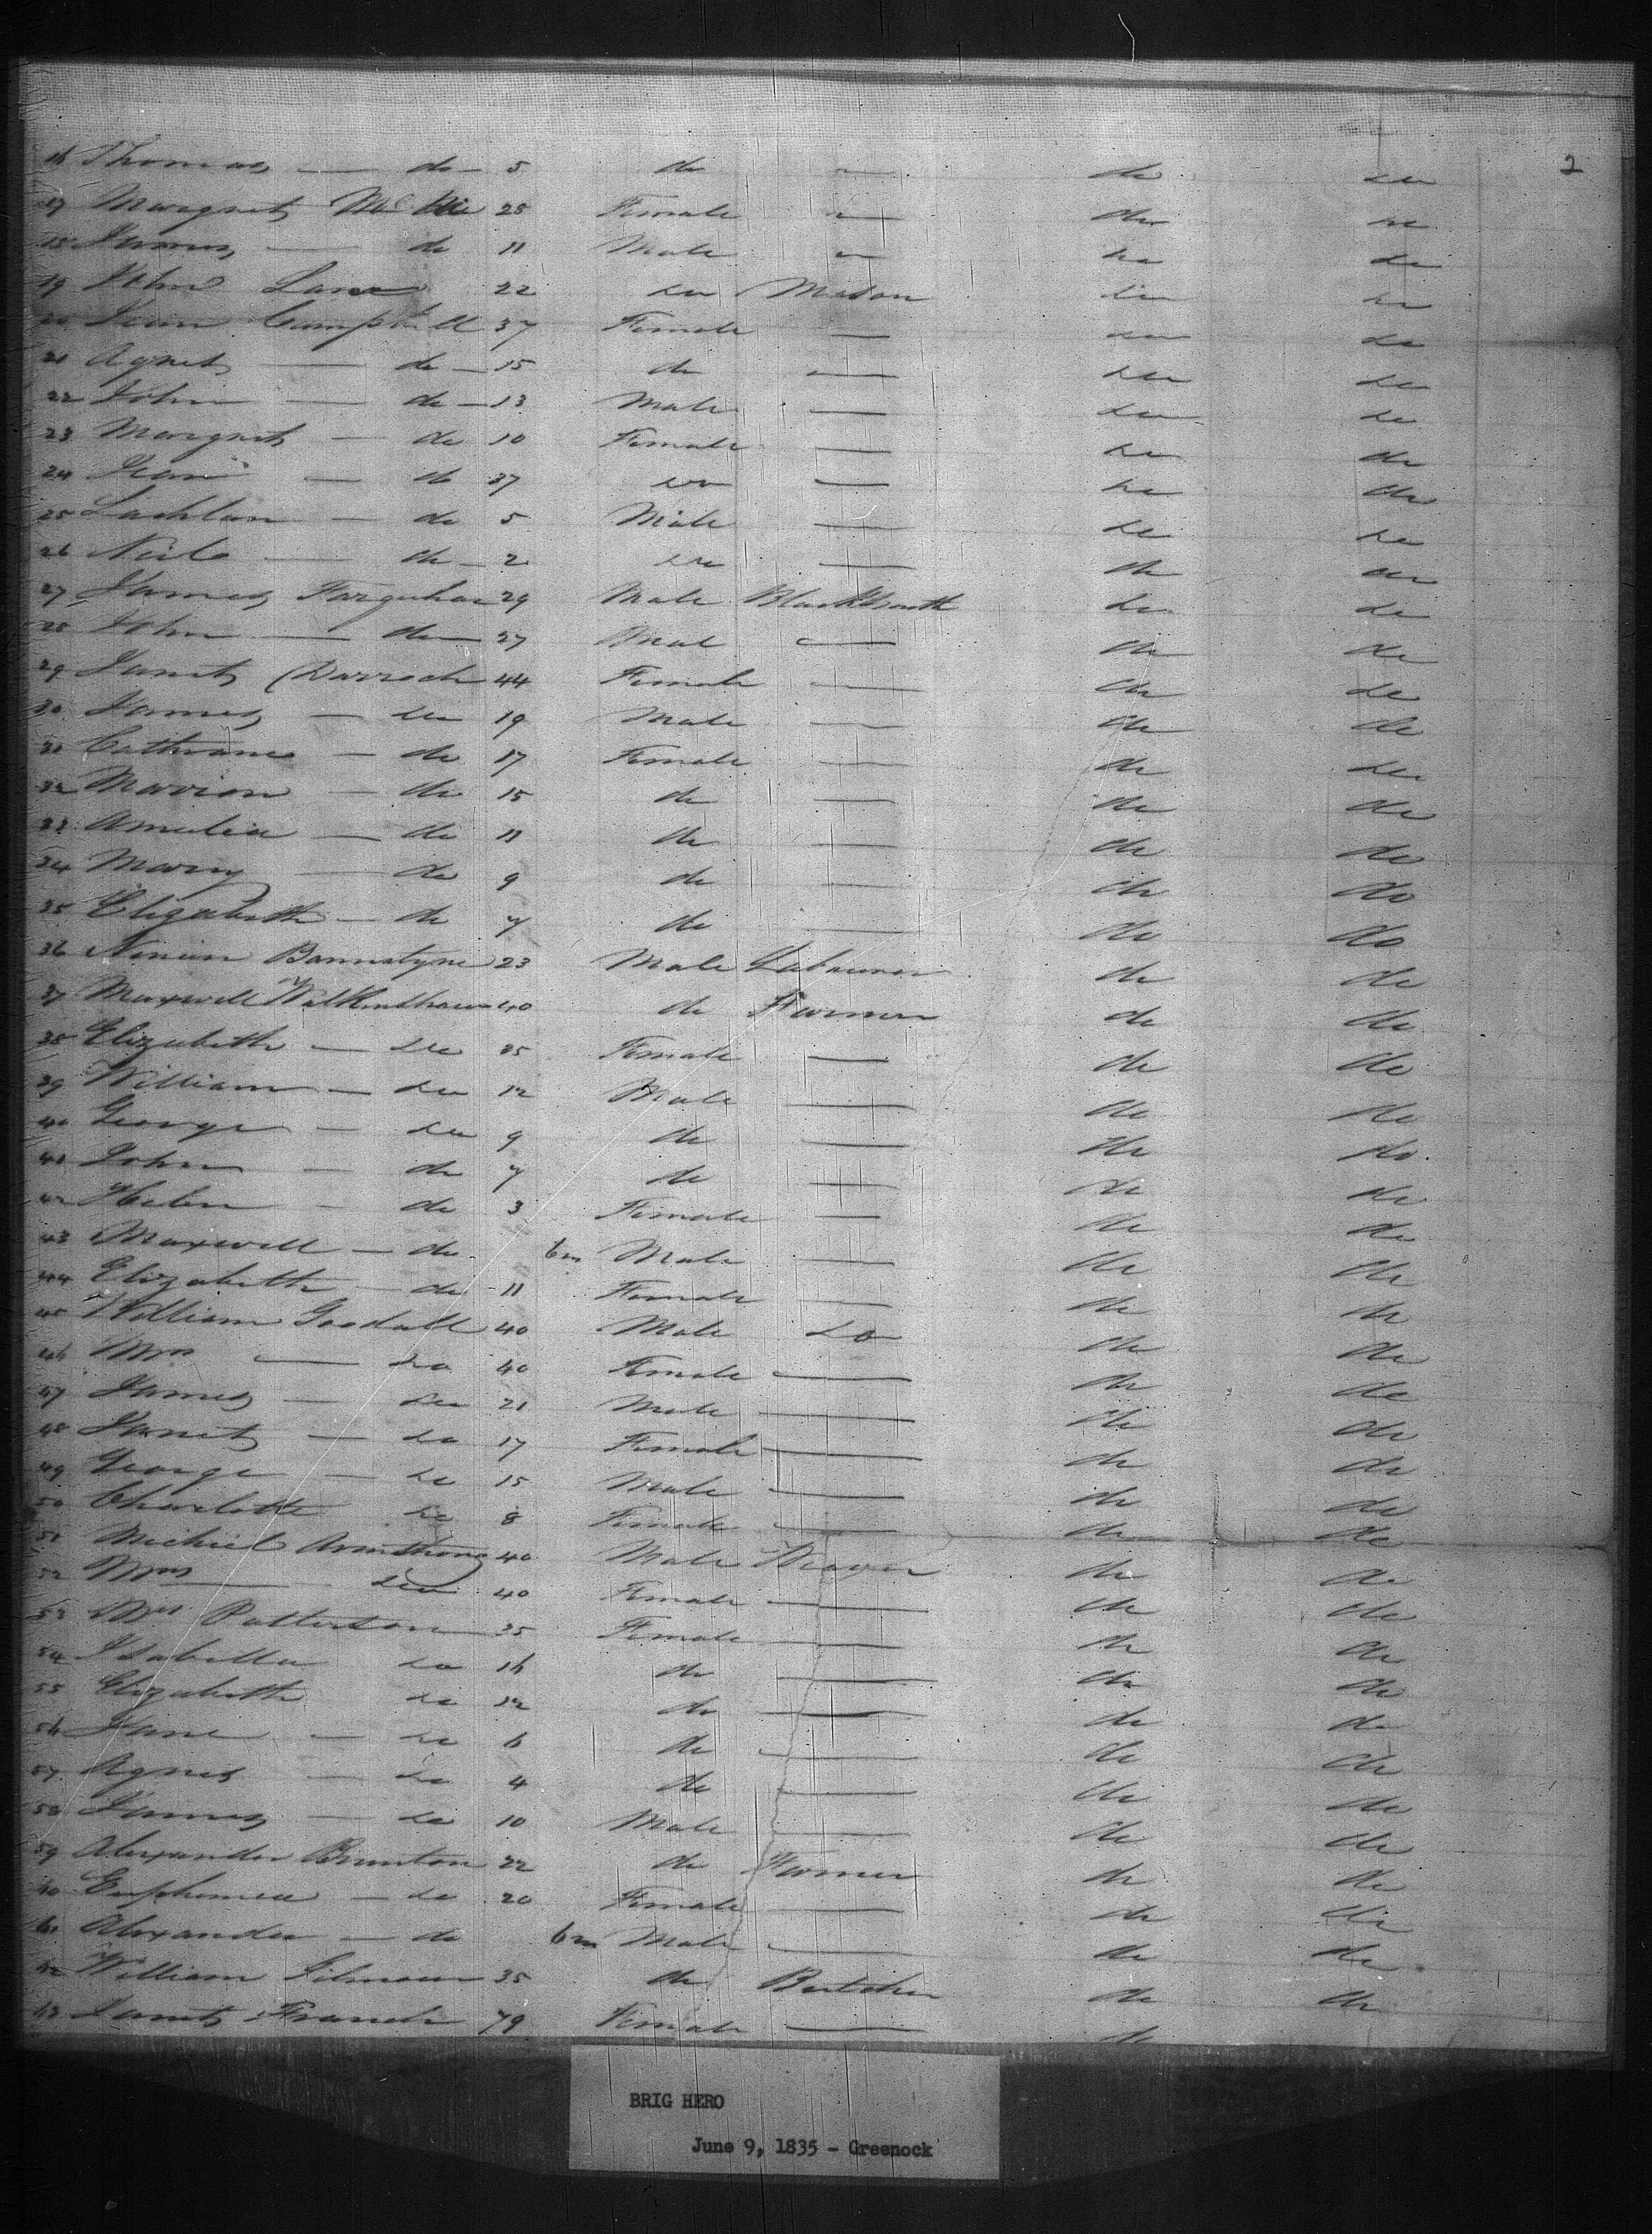 2
16 Thomas — do — 5 do — do do
17 Margret Mc 25 Female — do do
18 James — do 11 Male — do do
19 John Lane 22 do Mason do do
20 Jean Campbell 37 Female — do do
21 Agnes — do — 15 do — do do
22 John — do — 13 Male — do do
23 Margret — do 10 Female — do do
24 Jean — do 37 do — do do
25 Lachlan — do 5 Male — do do
26 Neil — do — 2 do — do do
27 James Farquhar 29 Male Blacksmith do do
28 John — do — 27 Male — do do
29 Janet Darroch 44 Female — do do
30 James — do 19 Male — do do
31 Cathrane — do 17 Female — do do
32 Marion — do 15 do — do do
33 Amelia — do 11 do — do do
34 Mary — do 9 do — do do
35 Elizabeth — do 7 do — do do
36 Ninian Bannatyne 23 Male Labourer do do
37 Maxwell Walkinshaw 40 do Farmer do do
38 Elizabeth — do 35 Female — do do
39 William — do 12 Male — do do
40 George — do 9 do — do do
41 John — do 7 do — do do
42 Helen — do 3 Female — do do
43 Maxwell — do 6m Male — do do
44 Elizabeth — do — 11 Female — do do
45 William Goodall 40 Male do do do
46 Mrs — do 40 Female — do do
47 James — do 21 Male — do do
48 Janet — do 17 Female — do do
49 George — do 15 Male — do do
50 Charlotte do 8 Female — do do
51 Michiel Armstrong 40 Male Weaver do do
52 Mrs — do 40 Female — do do
53 Mrs Patterson 35 Female — do do
54 Isabella do 16 do — do do
55 Elizabeth do 12 do — do do
56 Jane — do 6 do — do do
57 Agnes — do 4 do — do do
58 James — do 10 Male — do do
59 Alexander Brunton 22 do Farmer do do
60 Euphemia — do 20 Female — do do
61 Alexander — do 6m Male — do do
62 William 35 do Butcher do do
63 Janet French 79 Female — do
BRIG HERO
June 9, 1835 - Greenock